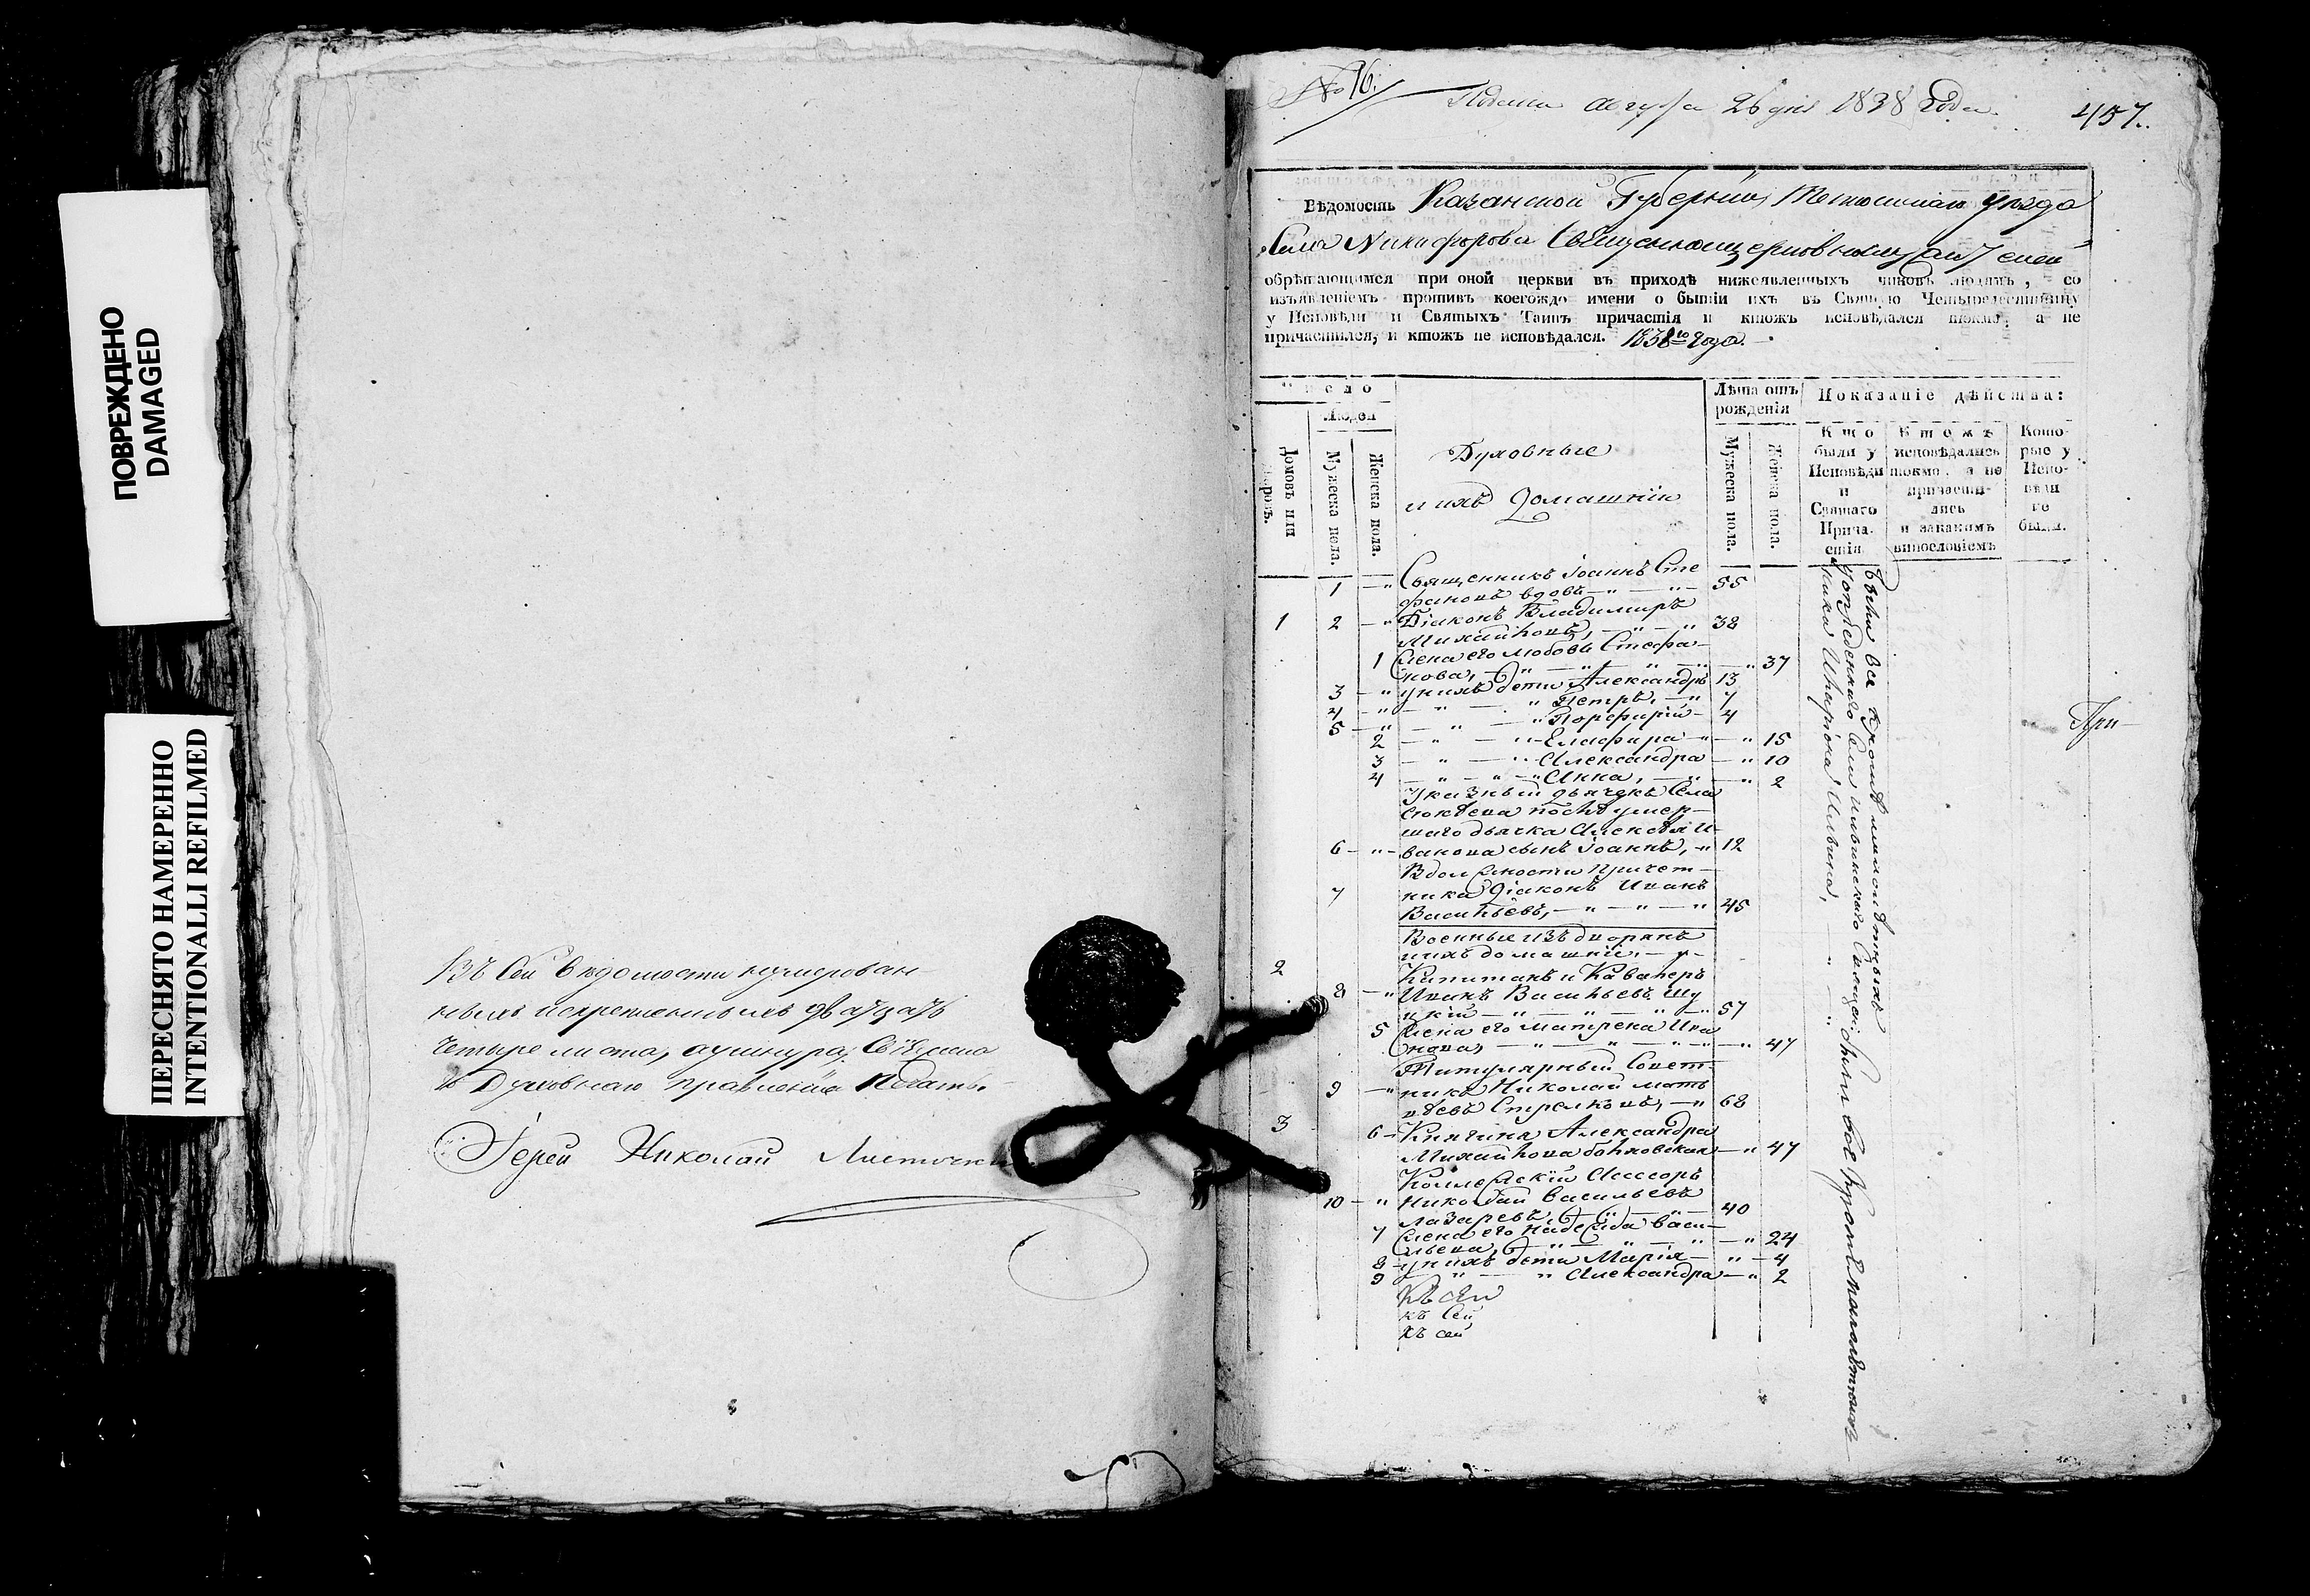 ПОВРЕЖДЕНО
DAMAGED
ПЕРЕСНЯТО НАМЕРЕННО
INTENTIONALLI REFILMED
Въ сей ведомости нумерован
ныхъ искрепленныхъ двадцать
четыре листа, ашнура,
Духовнаго правленія печать.
Іерей Николай
№ 16.
Подана августа 26 дня 1838 года.
457.
Вѣдомость Казанской Губерніи, Тетюшскаго уезда
Села Никифорова
обрѣтающимся при оной церкви въ приходѣ нижеявленныхъ чиновъ людямъ, со
изъявленіемъ противъ коегождо имени о бытіи ихъ въ Святую Четыредесятницу
у Исповѣди и Святыхъ Таинъ причастія и ктожъ исповѣдался токмо, а не
причастился, и ктожъ не исповѣдался. 1838го года.
Число
Людей
Лѣта отъ рожденія
Показаніе дѣйства:
Домовъ или дворовъ.
Мужеска пола.
Женска пола.
Духовные
и ихъ домашніи
Мужеска пола.
Женска пола.
Кто были у Исповѣди и Святаго Причастія
Ктожъ исповѣдались токмо, а не причастились и закакимъ винословіемъ
Которые у Исповѣди не были.
Священникъ Іоаннъ Сте
1 — " фановъ вдовъ — " — " — 55
1 2 — " Діаконъ Владимиръ
Михайловъ, — " — " 38
1 Жена его Любовь Стефа-
нова, — " — " — " — " 37
3 — " у нихъ дети Александръ 13
4 — " — " — " Петръ, — " 7
5 — " — " — " Порфирій — 4
2 — " — " — Елафира — " — " 15
3 — " — " — Александра — " 10
4 — " — " — " Анна, — " — " 2
Указный дьячекъ Села
послѣ умер-
шаго дьячка Алексѣя И-
6 — " — ванова сынъ Іоаннъ, — " 12
Вдолжности Причет-
7 ника Діаконъ Иванъ
Васильевъ, — " — " — " 45
Военные изъ дворянъ
ихъ домашніи, —
2 Капитанъ и Кавалеръ
8 — " Иванъ Васильевъ Шу
цкій — " — " — " — " 57
5 Жена его Матрена Ива
нова, — " — " — " — " 47
Титулярный Совет-
9 — " никъ Николай Мать
вѣевъ Стрелковъ, — " 68
3 6 — Княгиня Александра
Михайлова Болховская — " 47
Коллежскій Ассесоръ
10 — " Николай Васильевъ
Лазаревъ, — " — " — 40
7 Жена его Надежда Васи-
льева, — " — " — " — " 24
8 у нихъ дети Марія — " — 4
9 — " — " Александра — " 2
къ сей
къ сей
къ сей
Были все кроме малолѣтныхъ
ника Илариона Ильина,
были все кроме малолѣтныхъ
При—